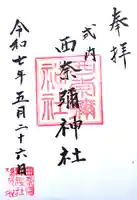 奉拝
式内
西奈彌神社
令和七年五月二十六日